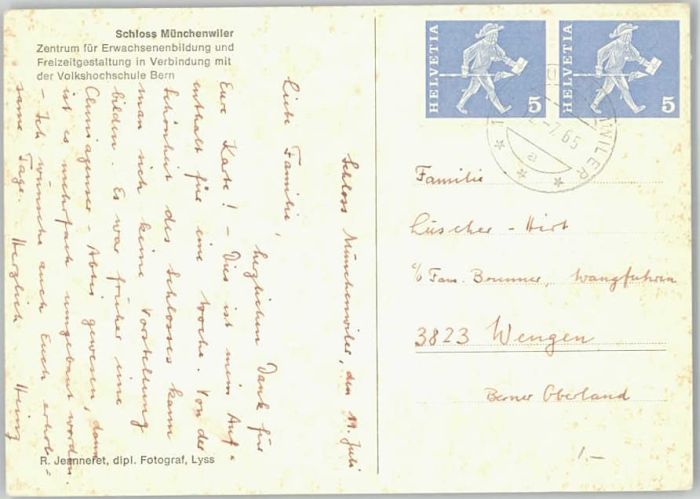 Schloss Münchenwiler
Zentrum für Erwachsenenbildung und
Freizeitgestaltung in Verbindung mit
der Volkshochschule Bern
Schloss Münchenwiler, den 11. Juli
Liebe Familie,
herzlichen Dank für
Eure Karte! – Dies ist mein Auf-
enthalt für eine Woche. Von der
Schönheit des Schlosses kann
man sich keine Vorstellung
bilden. Es war früher eine
Cluniazenser-Abtei gewesen, dann
ist es mehrfach umgebaut worden.
– Ich wünsche auch Euch erhol-
same Tage. Herzlich Heinz
R. Jeanneret, dipl. Fotograf, Lyss
HELVETIA 5
HELVETIA 5
7.65
WILER
a
Familie
Lüscher-Hirt
c/o Fam. Brunner, Wangfuhren
3823 Wengen
Berner Oberland
1.–